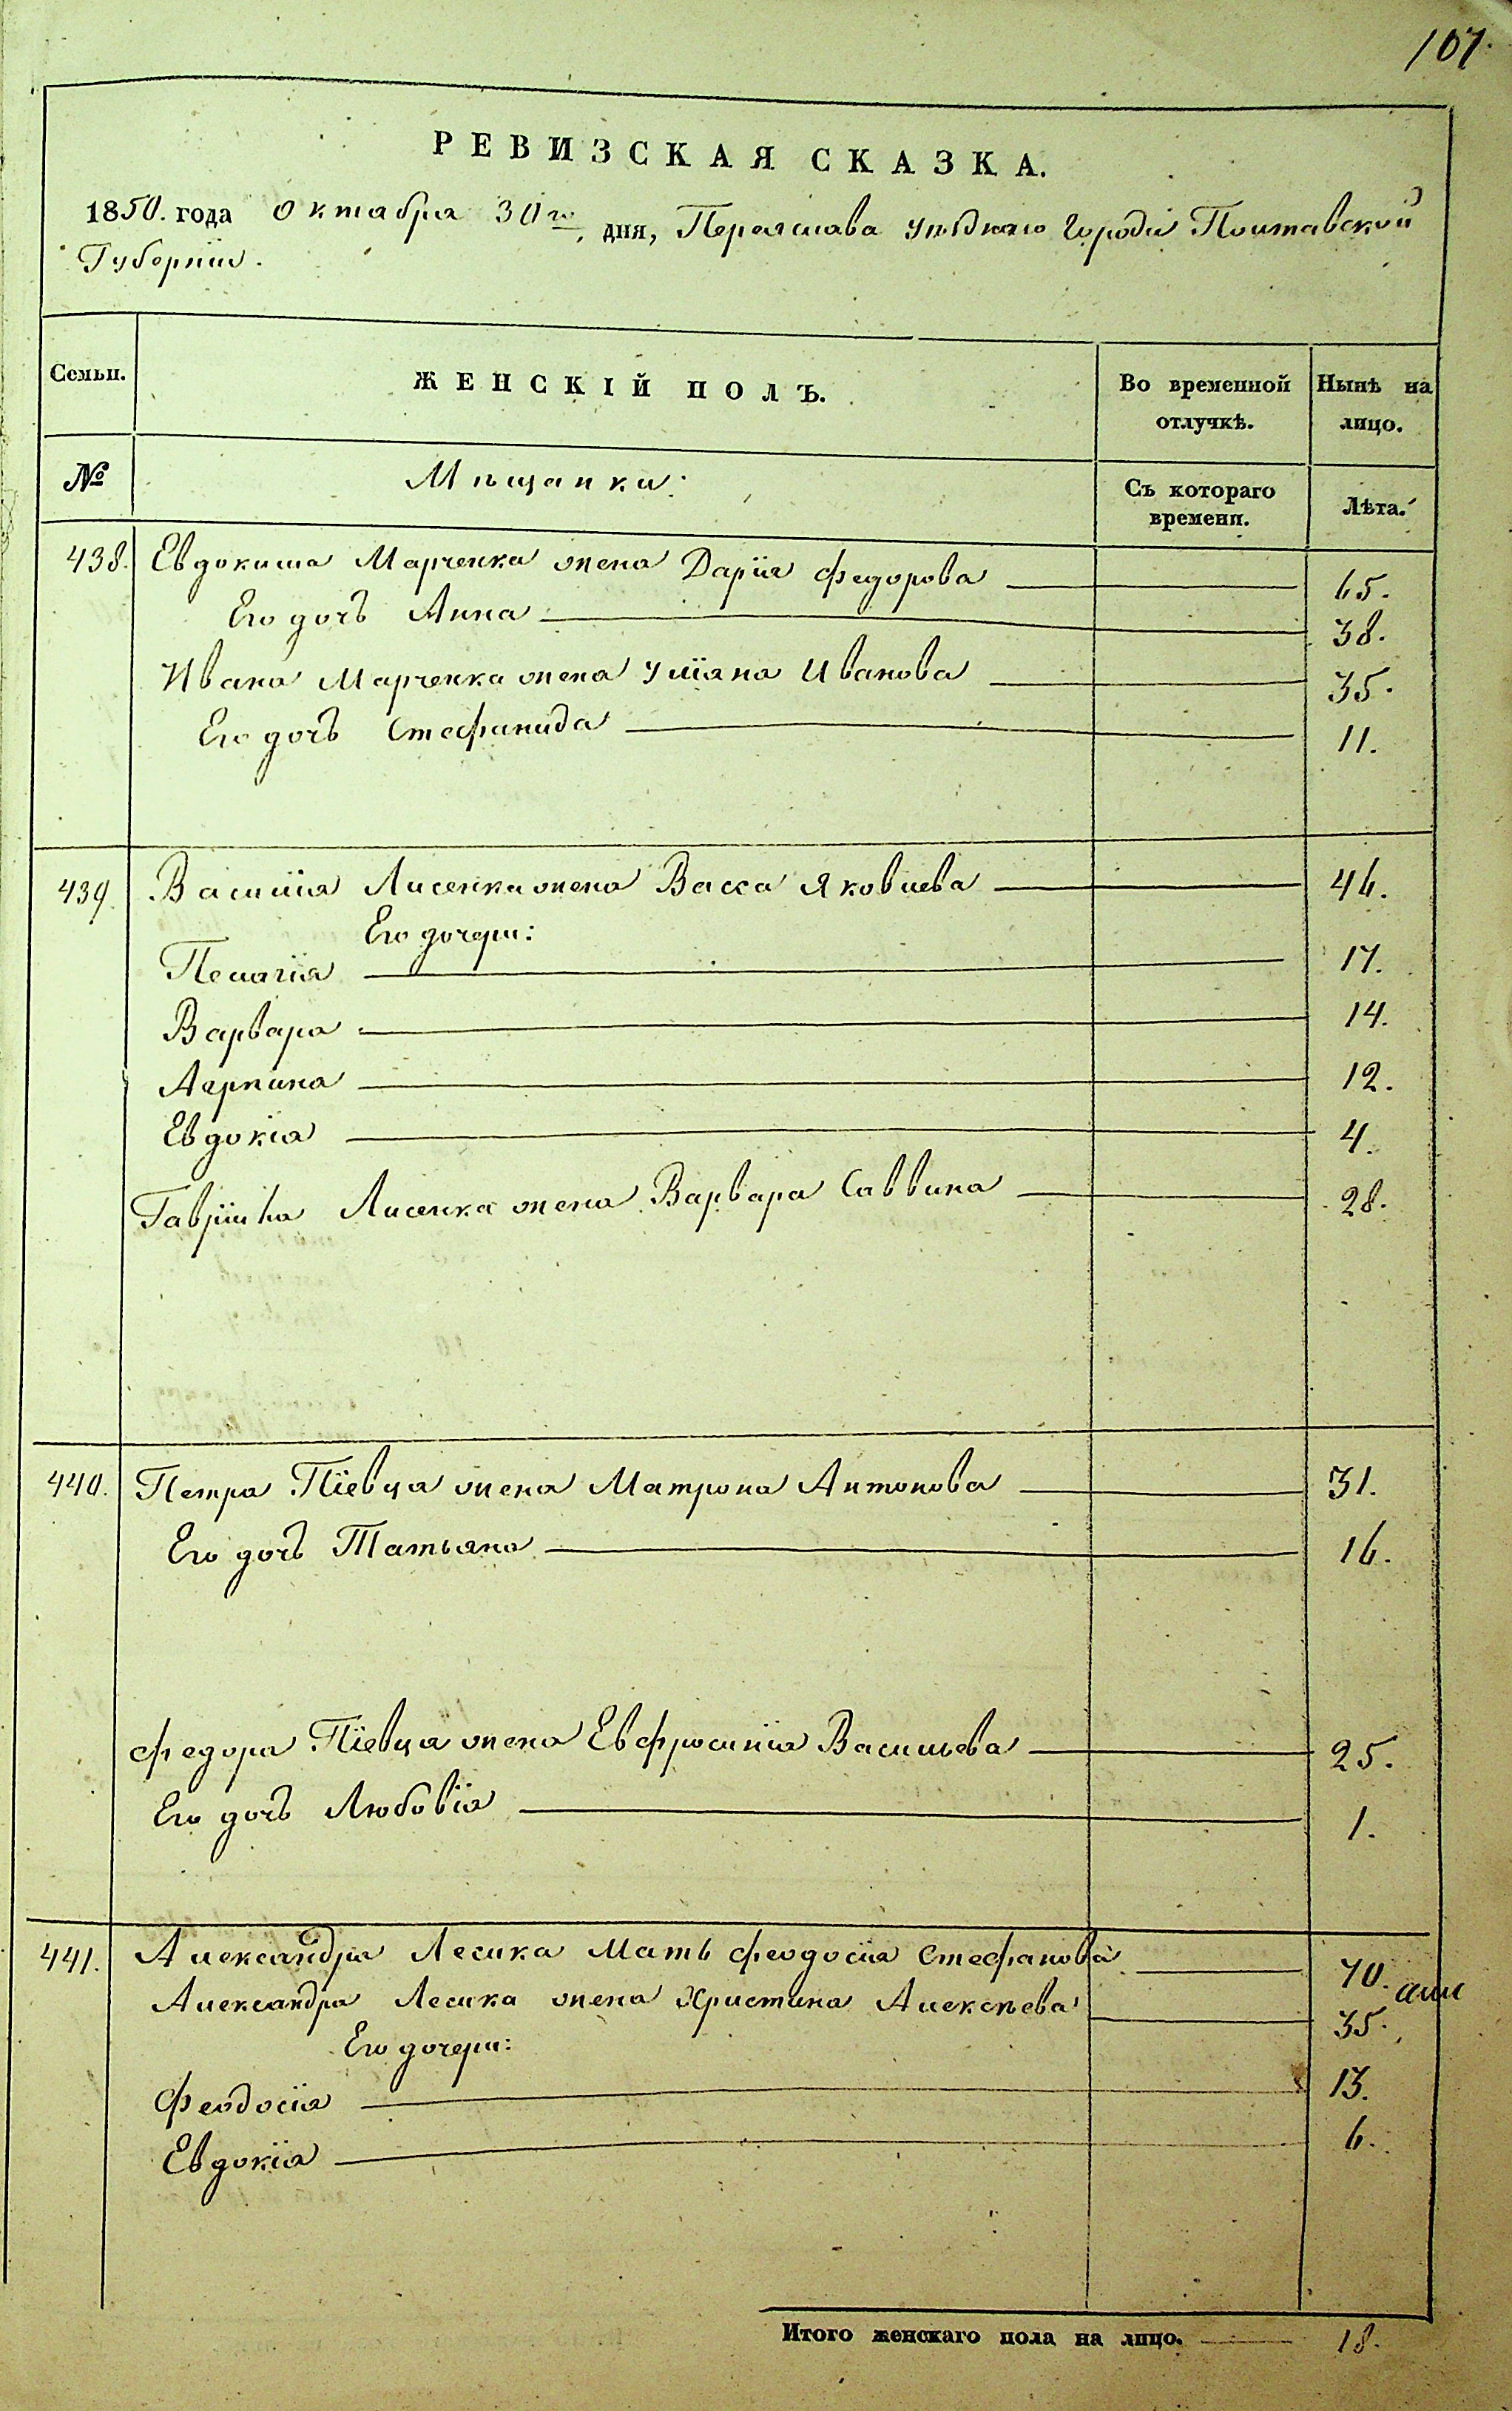 107.
РЕВИЗСКАЯ СКАЗКА.
1850. года Октября 30го дня, Переяслава уѣзднаго города Полтавской
Губерніи.
Семьи. ЖЕНСКІЙ ПОЛЪ. Во временной отлучкѣ. Нынѣ на лицо.
№ Мѣщанки: Съ котораго времени. Лѣта.
438. Евдокима Марченка жена Дарія Федорова 65.
Его дочь Анна 38.
Ивана Марченка жена Уліана Иванова 35.
Его дочь Стефанида 11.
439. Василія Лисенка жена Васса Яковлева 46.
Его дочери:
Пелагія 17.
Варвара 14.
Агрпина 12.
Евдокія 4.
Гавріила Лисенка жена Варвара Саввина 28.
440. Петра Піевца жена Матрона Антонова 31.
Его дочь Татьяна 16.
Федора Піевца жена Евфросинія Васильева 25.
Его дочь Любовія 1.
441. Александра Лесика Мать Феодосія Стефанова 70.
Александра Лесика жена Христина Алексѣева 35.
Его дочери:
Феодосія 13.
Евдокія 6.
Итого женскаго пола на лицо. 18.